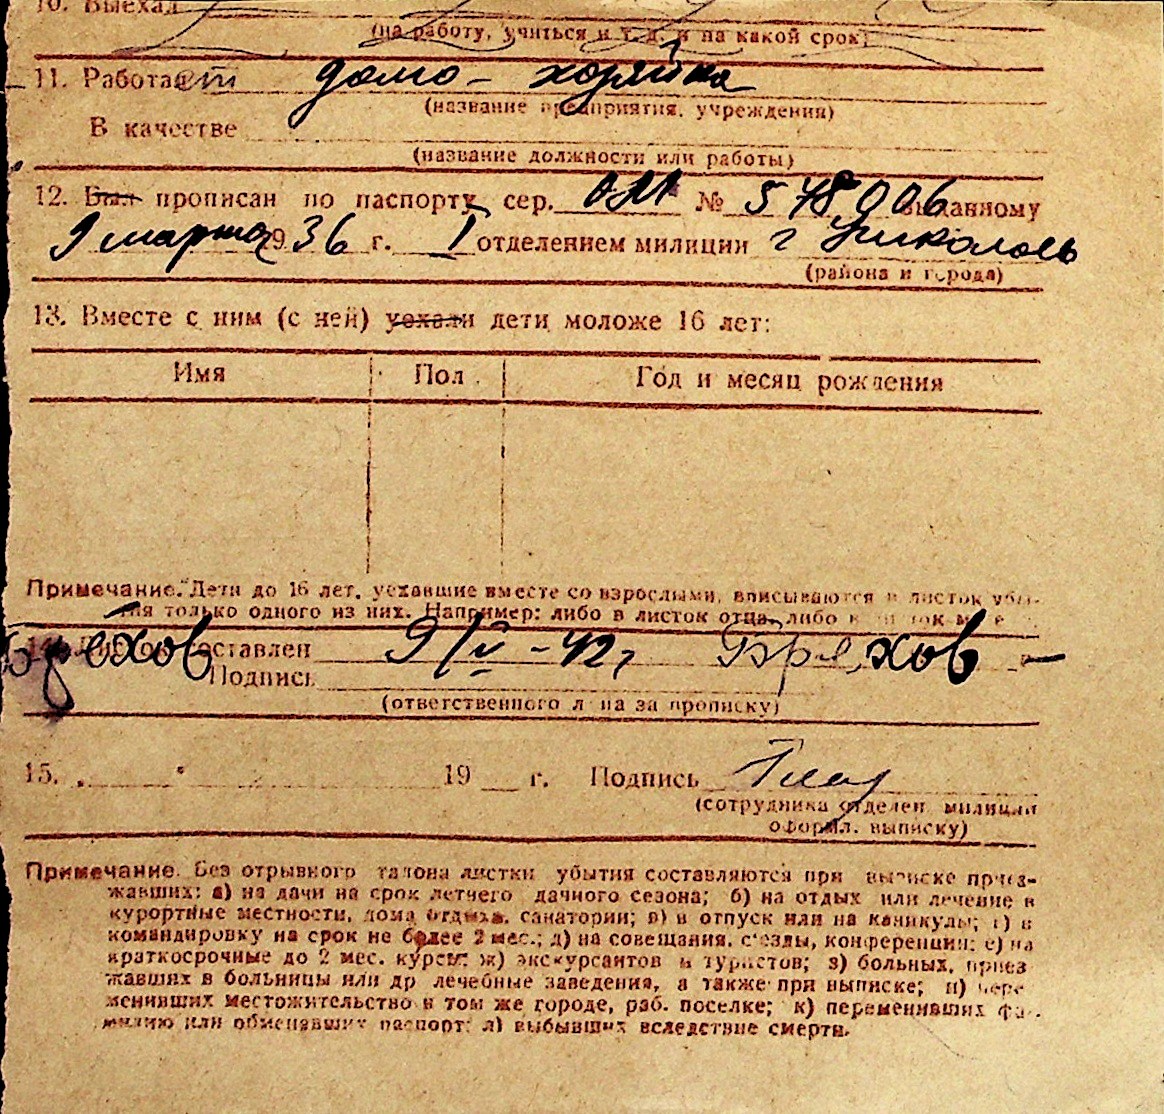 10. Выехал
(на работу, учиться и т. д. и на какой срок)
11. Работает домо-хозяйка
(название предприятия, учреждения)
В качестве
(название должности или работы)
12. Был прописан по паспорту сер. № 578006 выданному
9 марта 1936 г. I отделением милиции г Николаев
(района и города)
13. Вместе с ним (с ней) уехали дети моложе 16 лет:
Имя Пол Год и месяц рождения
Примечание. Дети до 16 лет, уехавшие вместе со взрослыми, вписываются в листок убы-
тия только одного из них. Например: либо в листок отца, либо в листок
14. Листок составлен 9/IV-42г Бряхов
Подпись
(ответственного лица за прописку)
15. „ " 19 г. Подпись
(сотрудника отделен. милиции
оформл. выписку)
Примечание. Без отрывного талона листки убытия составляются при выписке приез-
жавших: а) на дачи на срок летнего дачного сезона; б) на отдых или лечение в
курортные местности, дома отдыха, санатории; в) в отпуск или на каникулы; г) в
командировку на срок не более 2 мес.; д) на совещания, съезды, конференции; е) на
краткосрочные до 2 мес. курсы; ж) экскурсантов и туристов; з) больных, приез
жавших в больницы или др лечебные заведения, а также при выписке; и) пере
менивших местожительство в том же городе, раб. поселке; к) переменивших фа-
милию или обменявших паспорт; л) выбывших вследствие смерти.